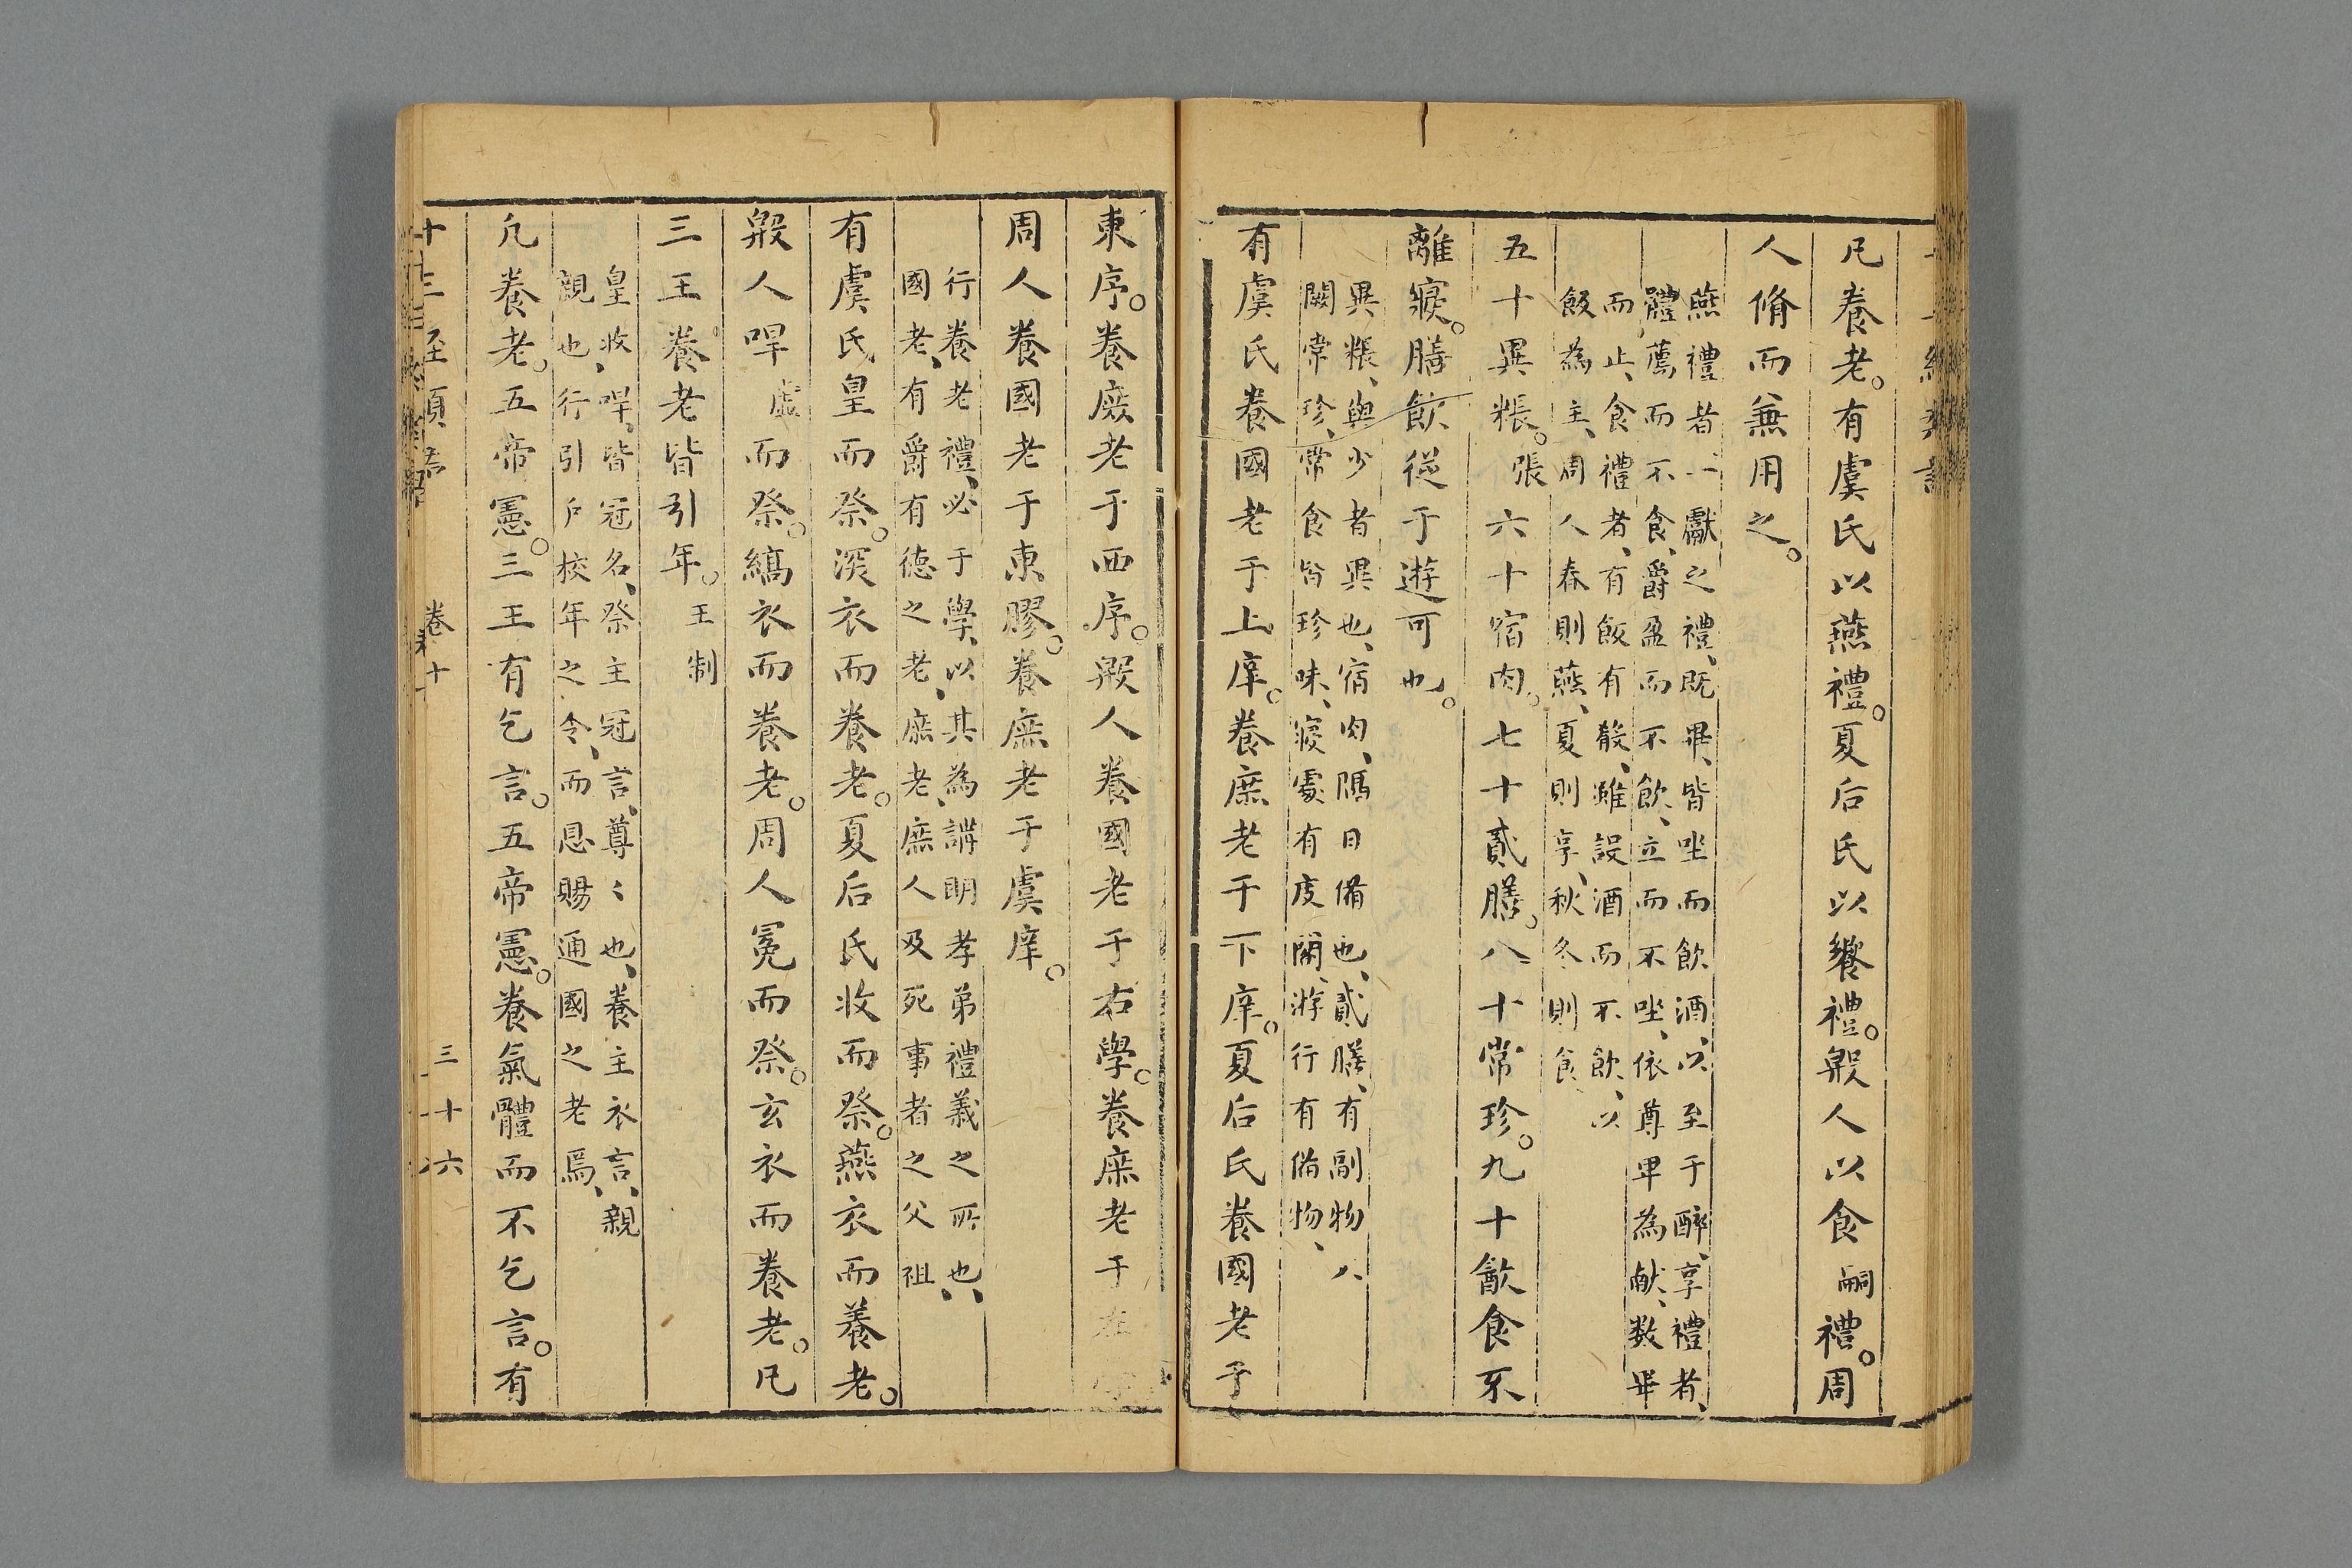 凡養老。有虞氏以燕禮。夏后氏以饗禮。殷人以食嗣禮。周
人脩而兼用之。
燕禮者、一獻之禮、既畢、皆坐而飲酒、以至于醉、享禮者、
體薦而不食、爵盈而不飲、立而不坐、依尊卑為献、数畢
而止、食禮者、有飯有殽、雖設酒而不飲、以
飯為主、周人春則燕、夏則享、秋冬則食、
五十異粻。張六十宿肉。七十貳膳。八十常珍。九十飲食不
離寢。膳飲從于遊可也。
異粻、與少者異也、宿肉、隔日備也、貳膳、有副物、八
闕常珍、常食皆珍味、寢處有庋閣、游行有備物、
有虞氏養國老于上庠。養庶老于下庠。夏后氏養國老于
東序。養庶老于西序。殷人養國老于右學。養庶老于
周人養國老于東膠。養庶老于虞庠。
行養老禮、必于學、以其為講明孝弟禮義之所也、
國老、有爵有德之老、庶老、庶人及死事者之父祖
有虞氏皇而祭。深衣而養老。夏后氏收而祭。燕衣而養老。
殷人哻虛而祭。縞衣而養老。周人冕而祭。玄衣而養老。凡
三王養老皆引年。王制
皇收、哻、皆冠名、祭主冠言、尊〻也、養主衣言、親
親也、行引戶校年之令、而恩賜通國之老焉、
凡養老。五帝憲。三王有乞言。五帝憲。養氣體而不乞言。有
卷十
三十六